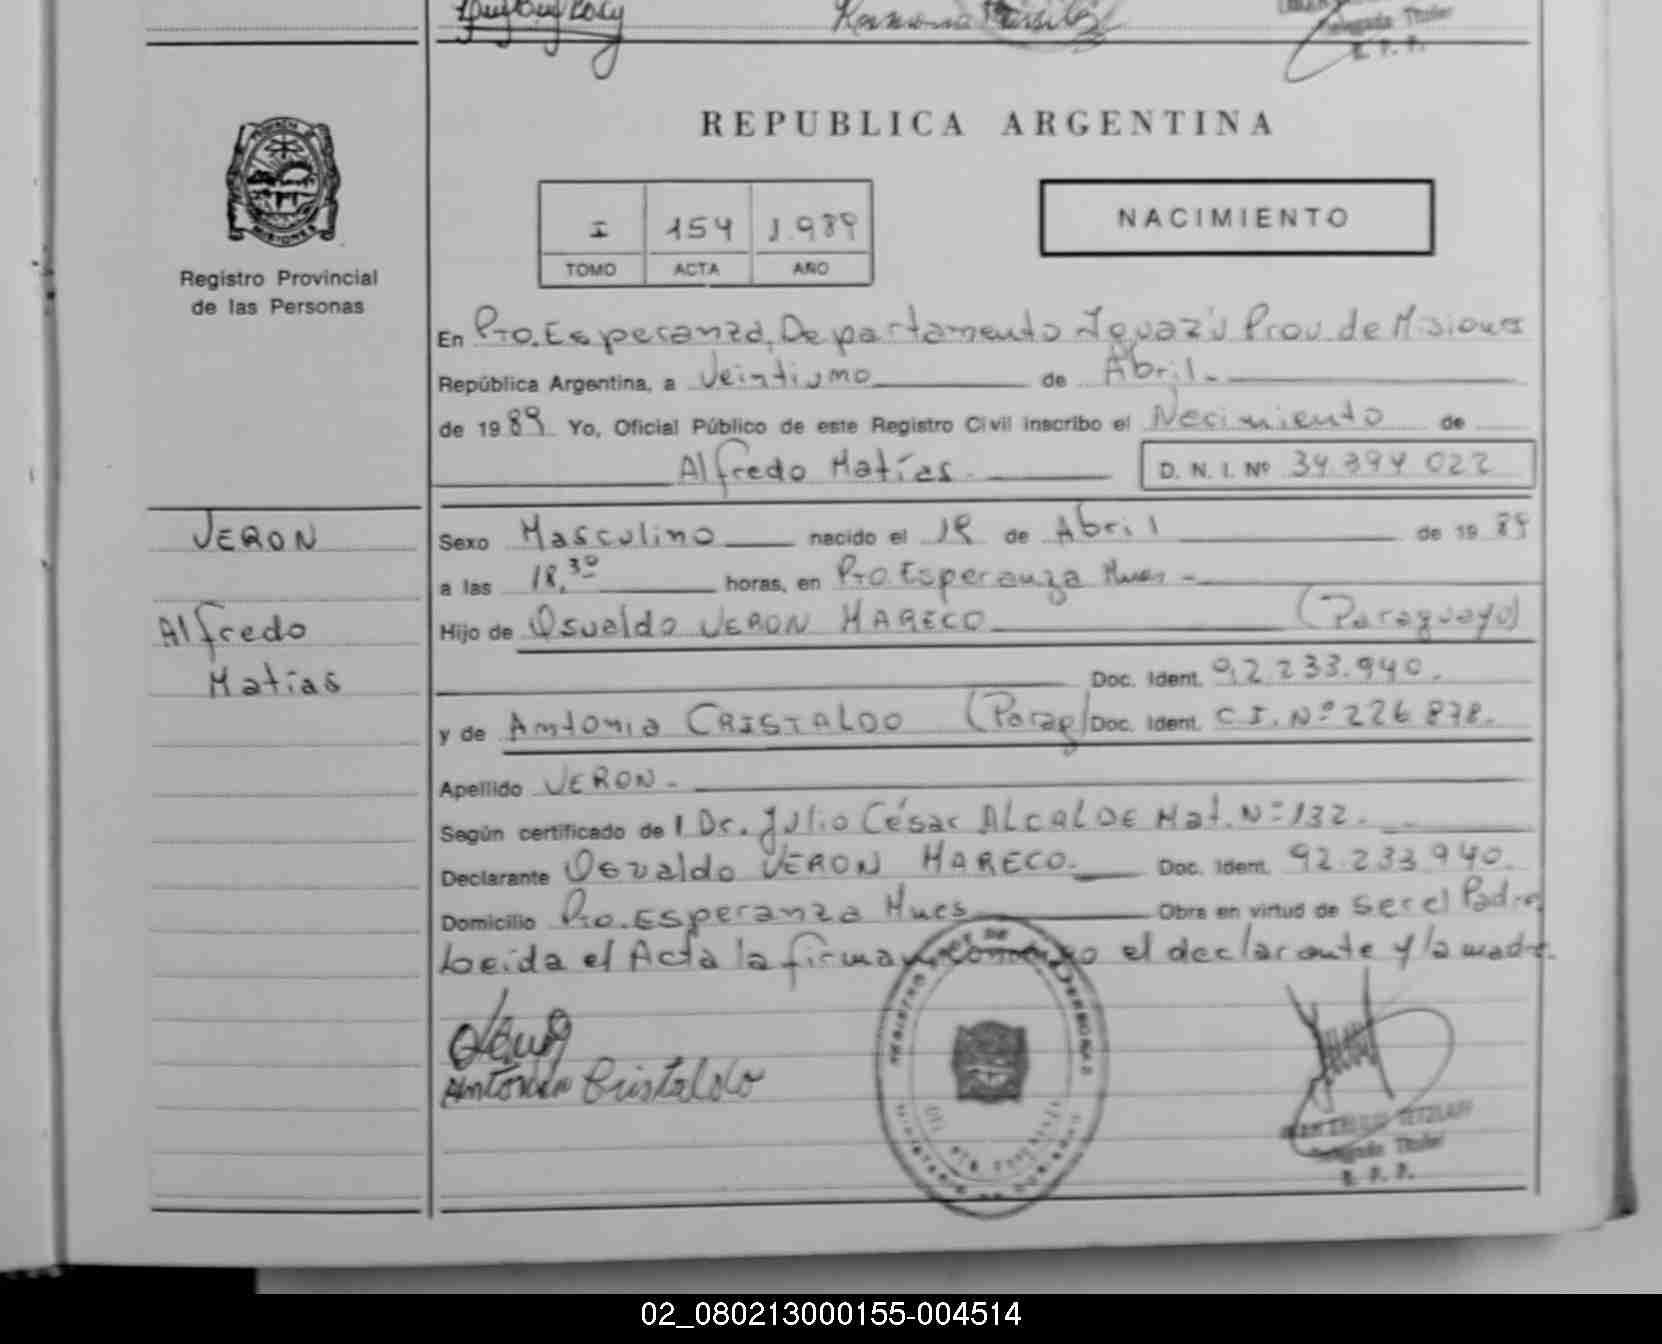 REPUBLICA ARGENTINA
PROVINCIA DE
MISIONES
Registro Provincial
de las Personas
I 154 1.989
TOMO ACTA AÑO
NACIMIENTO
En Pto. Esperanza, Departamento Iguazú Prov. de Misiones
República Argentina, a Veintiuno de Abril.-
de 1989 Yo, Oficial Público de este Registro Civil inscribo el Nacimiento de
Alfredo Matías.- D. N. I. Nº 34 394 022
VERON
Alfredo
Matías
Sexo Masculino nacido el 19 de Abril de 1989
a las 18,30 horas, en Pto. Esperanza Mnes -
Hijo de Osvaldo VERON MARECO (Paraguayo)
Doc. Ident. 92.233.940.
y de Antonia CRISTALDO (Parag/ Doc. Ident. C.I. Nº 226 878.
Apellido VERON.-
Según certificado del Dr. Julio César ALCALDE Mat. Nº 132.
Declarante Osvaldo VERON MARECO. Doc. Ident. 92.233.940.
Domicilio Pto. Esperanza Mnes Obra en virtud de ser el Padre.
Leida el Acta la firman conmigo el declarante y la madre.
Antonia Cristaldo
TETZLAFF
Delegado Titular
R. P. P.
02_080213000155-004514